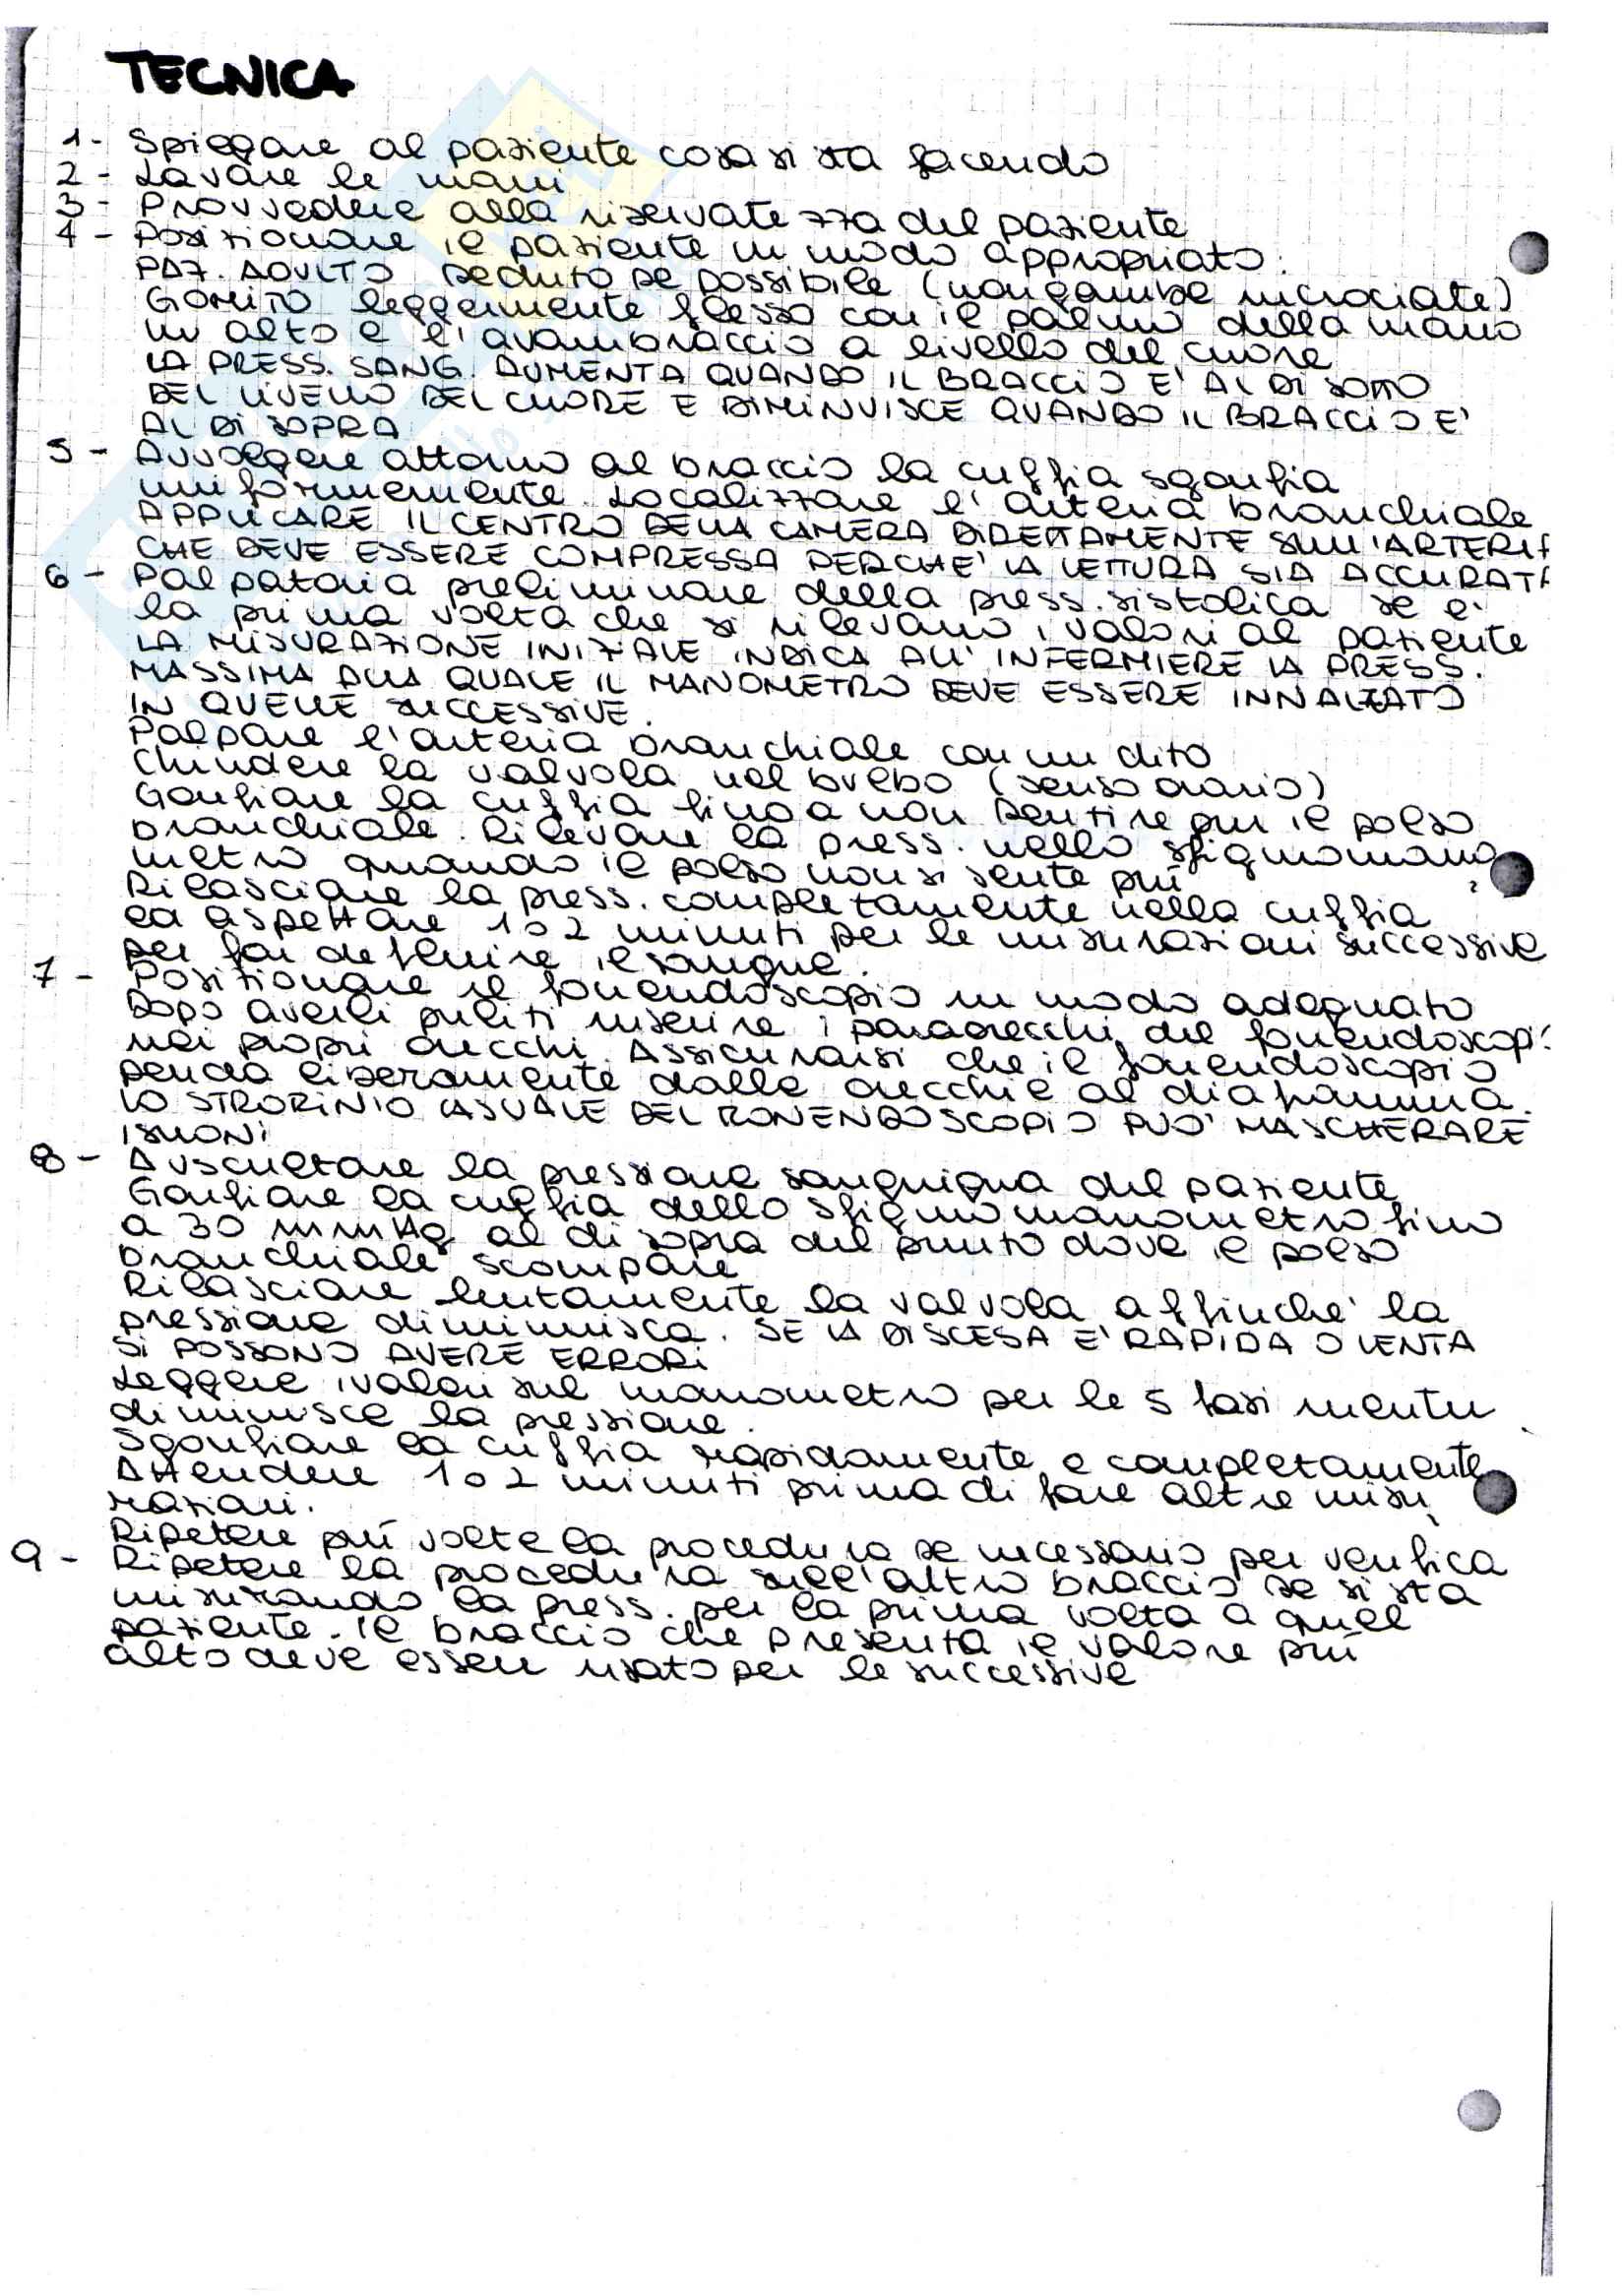 TECNICA
1- Spiegare al paziente cosa si sta facendo
2- Lavare le mani
3- Provvedere alla riservatezza del paziente
4- Posizionare il paziente in modo appropriato:
PAZ. ADULTO seduto se possibile (non gambe incrociate)
Gomito leggermente flesso con il palmo della mano
in alto e l'avambraccio a livello del cuore
LA PRESS. SANG. AUMENTA QUANDO IL BRACCIO E' AL DI SOTTO
DEL LIVELLO DEL CUORE E DIMINUISCE QUANDO IL BRACCIO E'
AL DI SOPRA
5- Avvolgere attorno al braccio la cuffia sgonfia
uniformemente. Localizzare l'arteria branchiale
APPLICARE IL CENTRO DELLA CAMERA DIRETTAMENTE SULL'ARTERIA
CHE DEVE ESSERE COMPRESSA PERCHE' LA LETTURA SIA ACCURATA
6- Palpatoria preliminare della press. sistolica se e'
la prima volta che si rilevano i valori al paziente
LA MISURAZIONE INIZIALE INDICA ALL'INFERMIERE LA PRESS.
MASSIMA ALLA QUALE IL MANOMETRO DEVE ESSERE INNALZATO
IN QUELLE SUCCESSIVE.
Palpare l'arteria branchiale con un dito
Chiudere la valvola nel bulbo (senso orario)
Gonfiare la cuffia fino a non sentire più il polso
branchiale. Rilevare la press. nello sfigmomano
metro quando il polso non si sente più
Rilasciare la press. completamente nella cuffia
ed aspettare 1 o 2 minuti per le misurazioni successive
per far defluire il sangue.
7- Posizionare il fonendoscopio in modo adeguato
Dopo averli puliti inserire i paraorecchi del fonendoscopi
nei propri orecchi. Assicurarsi che il fonendoscopio
penda liberamente dalle orecchie al diaframma.
LO STROFINIO CASUALE DEL FONENDOSCOPIO PUO' MASCHERARE
I SUONI
8- Auscultare la pressione sanguigna del paziente
Gonfiare la cuffia dello sfigmomanometro fino
a 30 mmHg al di sopra del punto dove il polso
branchiale scompare
Rilasciare lentamente la valvola affinche' la
pressione diminuisca. SE LA DISCESA E' RAPIDA O LENTA
SI POSSONO AVERE ERRORI
Leggere i valori sul manometro per le 5 fasi mentre
diminuisce la pressione.
Sgonfiare la cuffia rapidamente e completamente
Attendere 1 o 2 minuti prima di fare altre misu
razioni.
Ripetere più volte la procedura se necessario per verifica
9- Ripetere la procedura sull'altro braccio se si sta
misurando la press. per la prima volta a quel
paziente. Il braccio che presenta il valore più
alto deve essere usato per le successive